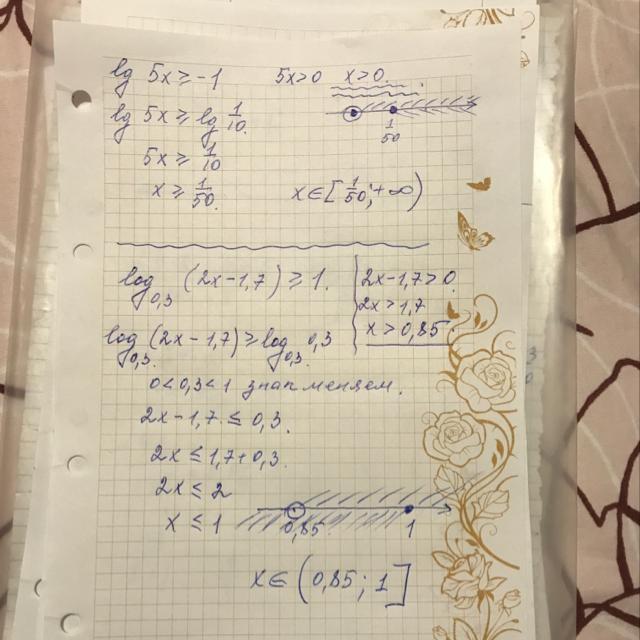 lg 5x ≥ -1 5x>0 x>0
lg 5x ≥ lg 1/10.
1/50
5x ≥ 1/10
x ≥ 1/50.
x ∈ [1/50; +∞)
log₀,₃ (2x-1,7) ≥ 1.
2x-1,7>0.
2x>1,7
x>0,85.
log₀,₃. (2x-1,7) ≥ log₀,₃. 0,3
0<0,3<1 знак меняем.
2x-1,7 ≤ 0,3.
2x ≤ 1,7+0,3.
2x ≤ 2
x ≤ 1
0,85 1
x ∈ (0,85; 1]